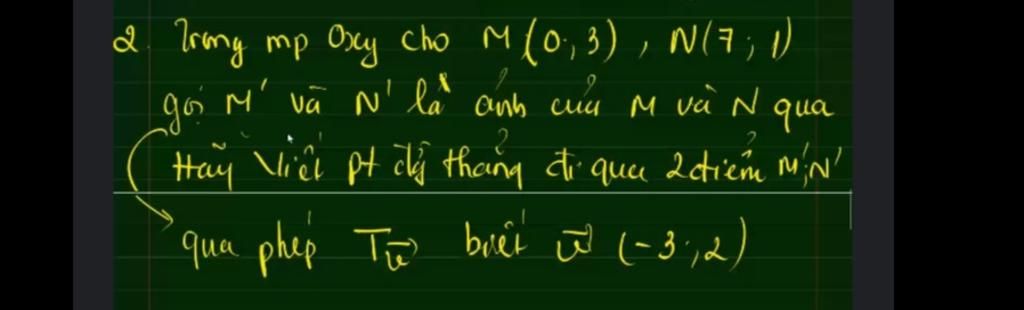 2. Trong mp Oxy cho M(0;3), N(7;1)
gọi M' và N' là ảnh của M và N qua
Hãy Viết pt đg thẳng đi qua 2 điểm M', N'
qua phép T_v⃗ biết v⃗ (-3;2)